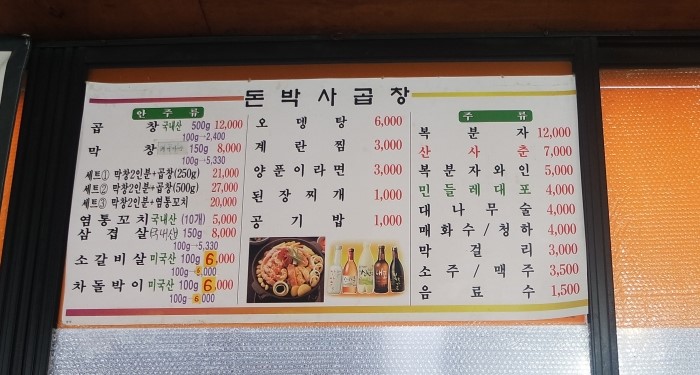 돈박사곱창
안주류
곱창 국내산 500g 12,000
100g→2,400
막창 150g 8,000
100g→5,330
세트① 막창2인분+곱창(250g) 21,000
세트② 막창2인분+곱창(500g) 27,000
세트③ 막창2인분+염통꼬치 20,000
염통꼬치 국내산 (10개) 5,000
삼겹살 (국내산) 150g 8,000
100g→5,330
소갈비살 미국산 100g 6,000
100g→6,000
차돌박이 미국산 100g 6,000
100g→6,000
오뎅탕 6,000
계란찜 3,000
양푼이라면 3,000
된장찌개 1,000
공기밥 1,000
주류
복분자 12,000
산사춘 7,000
복분자와인 5,000
민들레대포 4,000
대나무술 4,000
매화수/청하 4,000
막걸리 3,000
소주/맥주 3,500
음료수 1,500